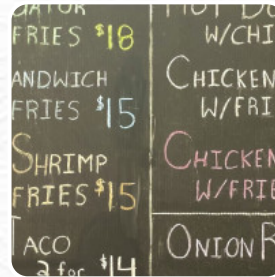 GATOR
FRIES $18
ANDWICH
FRIES $15
SHRIMP
FRIES $15
TACO
2 for $14
HOT DO
W/CHI
CHICKEN
W/FRI
CHICKEN
W/FRIE
ONION R